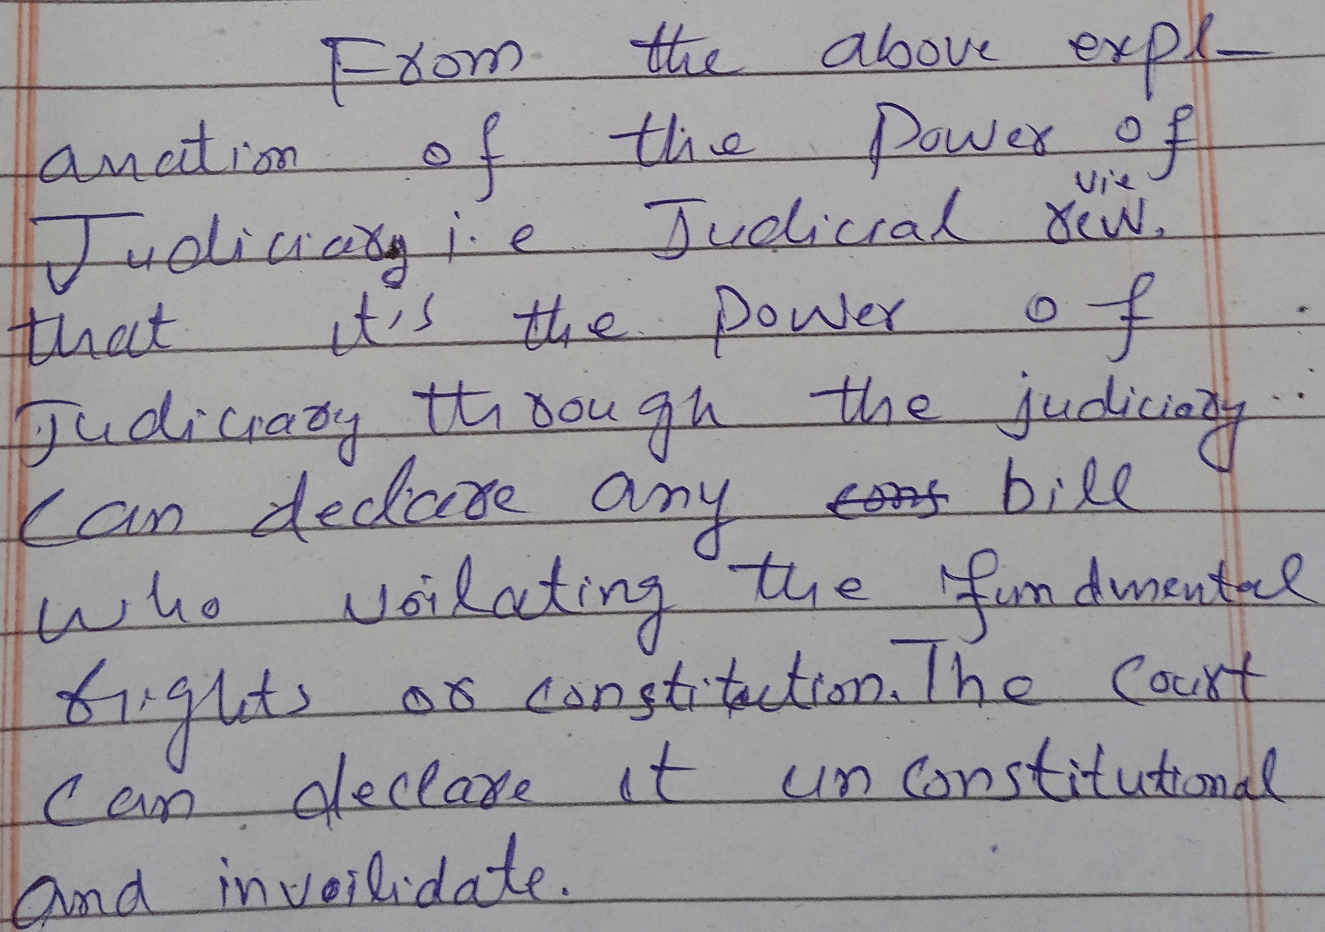 From the above expl-
anation of the Power of
Judiciary i.e Judicial review.
that it's the power of
Judiciary through the judiciary
can declare any bill
who voilating the fundmental
rights or constitution. The Court
can declare it unconstitutional
and invailidate.